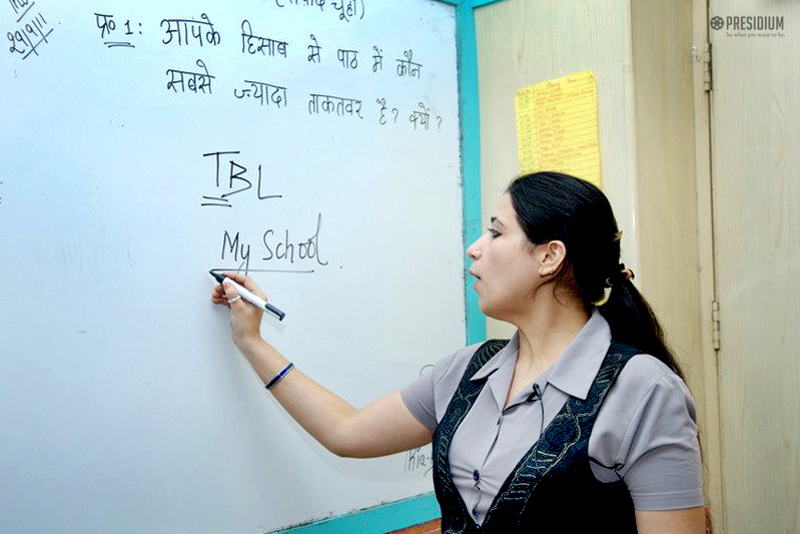 (सफ़ेद चूहा)
प्र० 1: आपके हिसाब से पाठ में कौन
सबसे ज्यादा ताकतवर है? क्यों?
TBL
My School.
PRESIDIUM
be what you want to be.